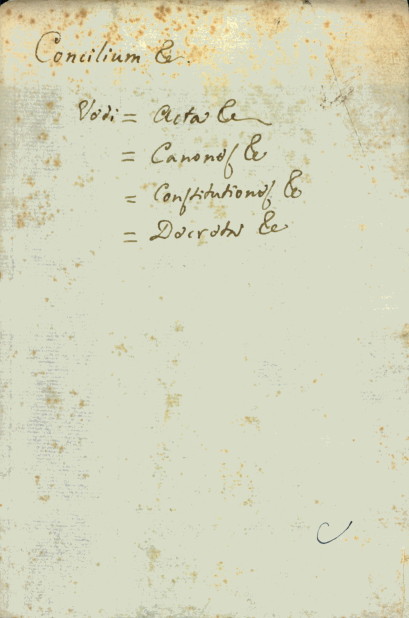 Concilium &c.
Vedi = Acta &c
= Canones &c
= Constitutiones &c
= Decreta &c